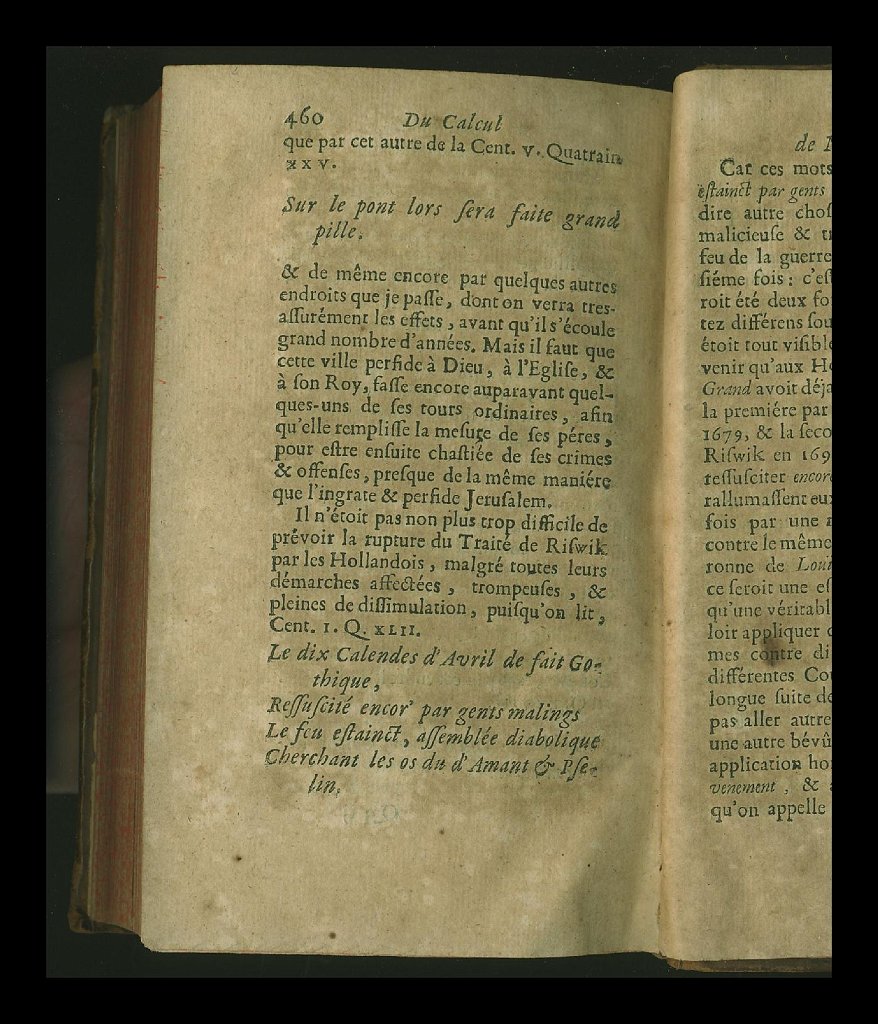 460 Du Calcul
que par cet autre de la Cent. v. Quatrain
xxv.
Sur le pont lors ſera faite grand
pille.
& de même encore par quelques autres
endroits que je paſſe, dont on verra tres-
aſſurément les effets, avant qu'il s'écoule
grand nombre d'années. Mais il faut que
cette ville perfide à Dieu, à l'Egliſe, &
à ſon Roy, faſſe encore auparavant quel-
ques-uns de ſes tours ordinaires, afin
qu'elle rempliſſe la meſure de ſes péres,
pour eſtre enſuite chaſtiée de ſes crimes
& offenſes, preſque de la même maniére
que l'ingrate & perfide Jeruſalem.
Il n'étoit pas non plus trop difficile de
prévoir la rupture du Traité de Riſwik
par les Hollandois, malgré toutes leurs
démarches affectées, trompeuſes, &
pleines de diſſimulation, puiſqu'on lit,
Cent. I. Q. XLII.
Le dix Calendes d'Avril de fait Go-
thique,
Reſſuſcité encor' par gents malings
Le feu eſtainct, aſſemblée diabolique
Cherchant les os du d'Amant & Pſe-
lin.
de
Car ces mots
eſtainct par gents
dire autre choſ
malicieuſe &
feu de la guerre
ſiéme fois: c'eſ
roit été deux fo
tez différens ſou
étoit tout viſibl
venir qu'aux H
Grand avoit déja
la premiére par
1679, & la ſeco
Riſwik en 169
reſſuſciter encor
rallumaſſent eu
fois par une
contre le même
ronne de Loui
ce ſeroit une eſ
qu'une véritabl
loir appliquer
mes contre di
différentes Co
longue ſuite de
pas aller autre
une autre bévû
application ho
venement, &
qu'on appelle